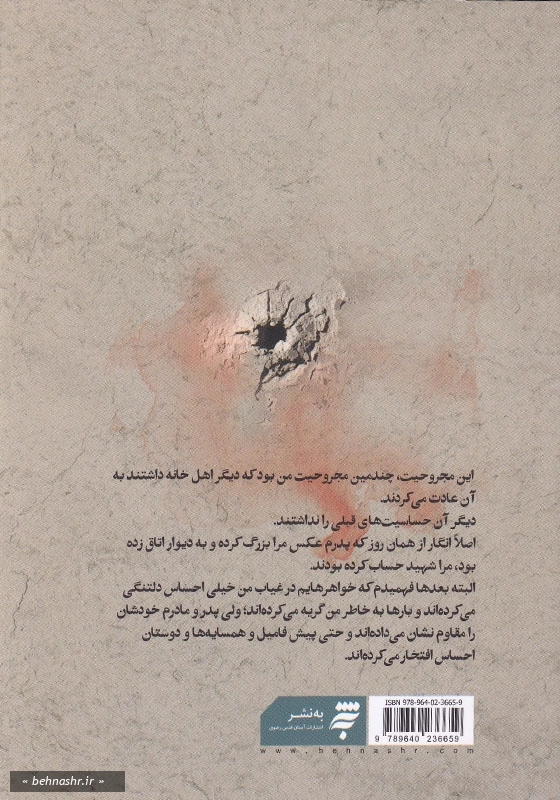 این مجروحیت، چندمین مجروحیت من بود که دیگر اهل خانه داشتند به
آن عادت می‌کردند.
دیگر آن حساسیت‌های قبلی را نداشتند.
اصلاً انگار از همان روز که پدرم عکس مرا بزرگ کرده و به دیوار اتاق زده
بود، مرا شهید حساب کرده بودند.
البته بعدها فهمیدم که خواهرهایم در غیاب من خیلی احساس دلتنگی
می‌کرده‌اند و بارها به خاطر من گریه می‌کرده‌اند؛ ولی پدر و مادرم خودشان
را مقاوم نشان می‌داده‌اند و حتی پیش فامیل و همسایه‌ها و دوستان
احساس افتخار می‌کرده‌اند.
به‌نشر
انتشارات آستان قدس رضوی
ISBN 978-964-02-3665-9
9 789640 236659
www.behnashr.com
« behnashr.ir »